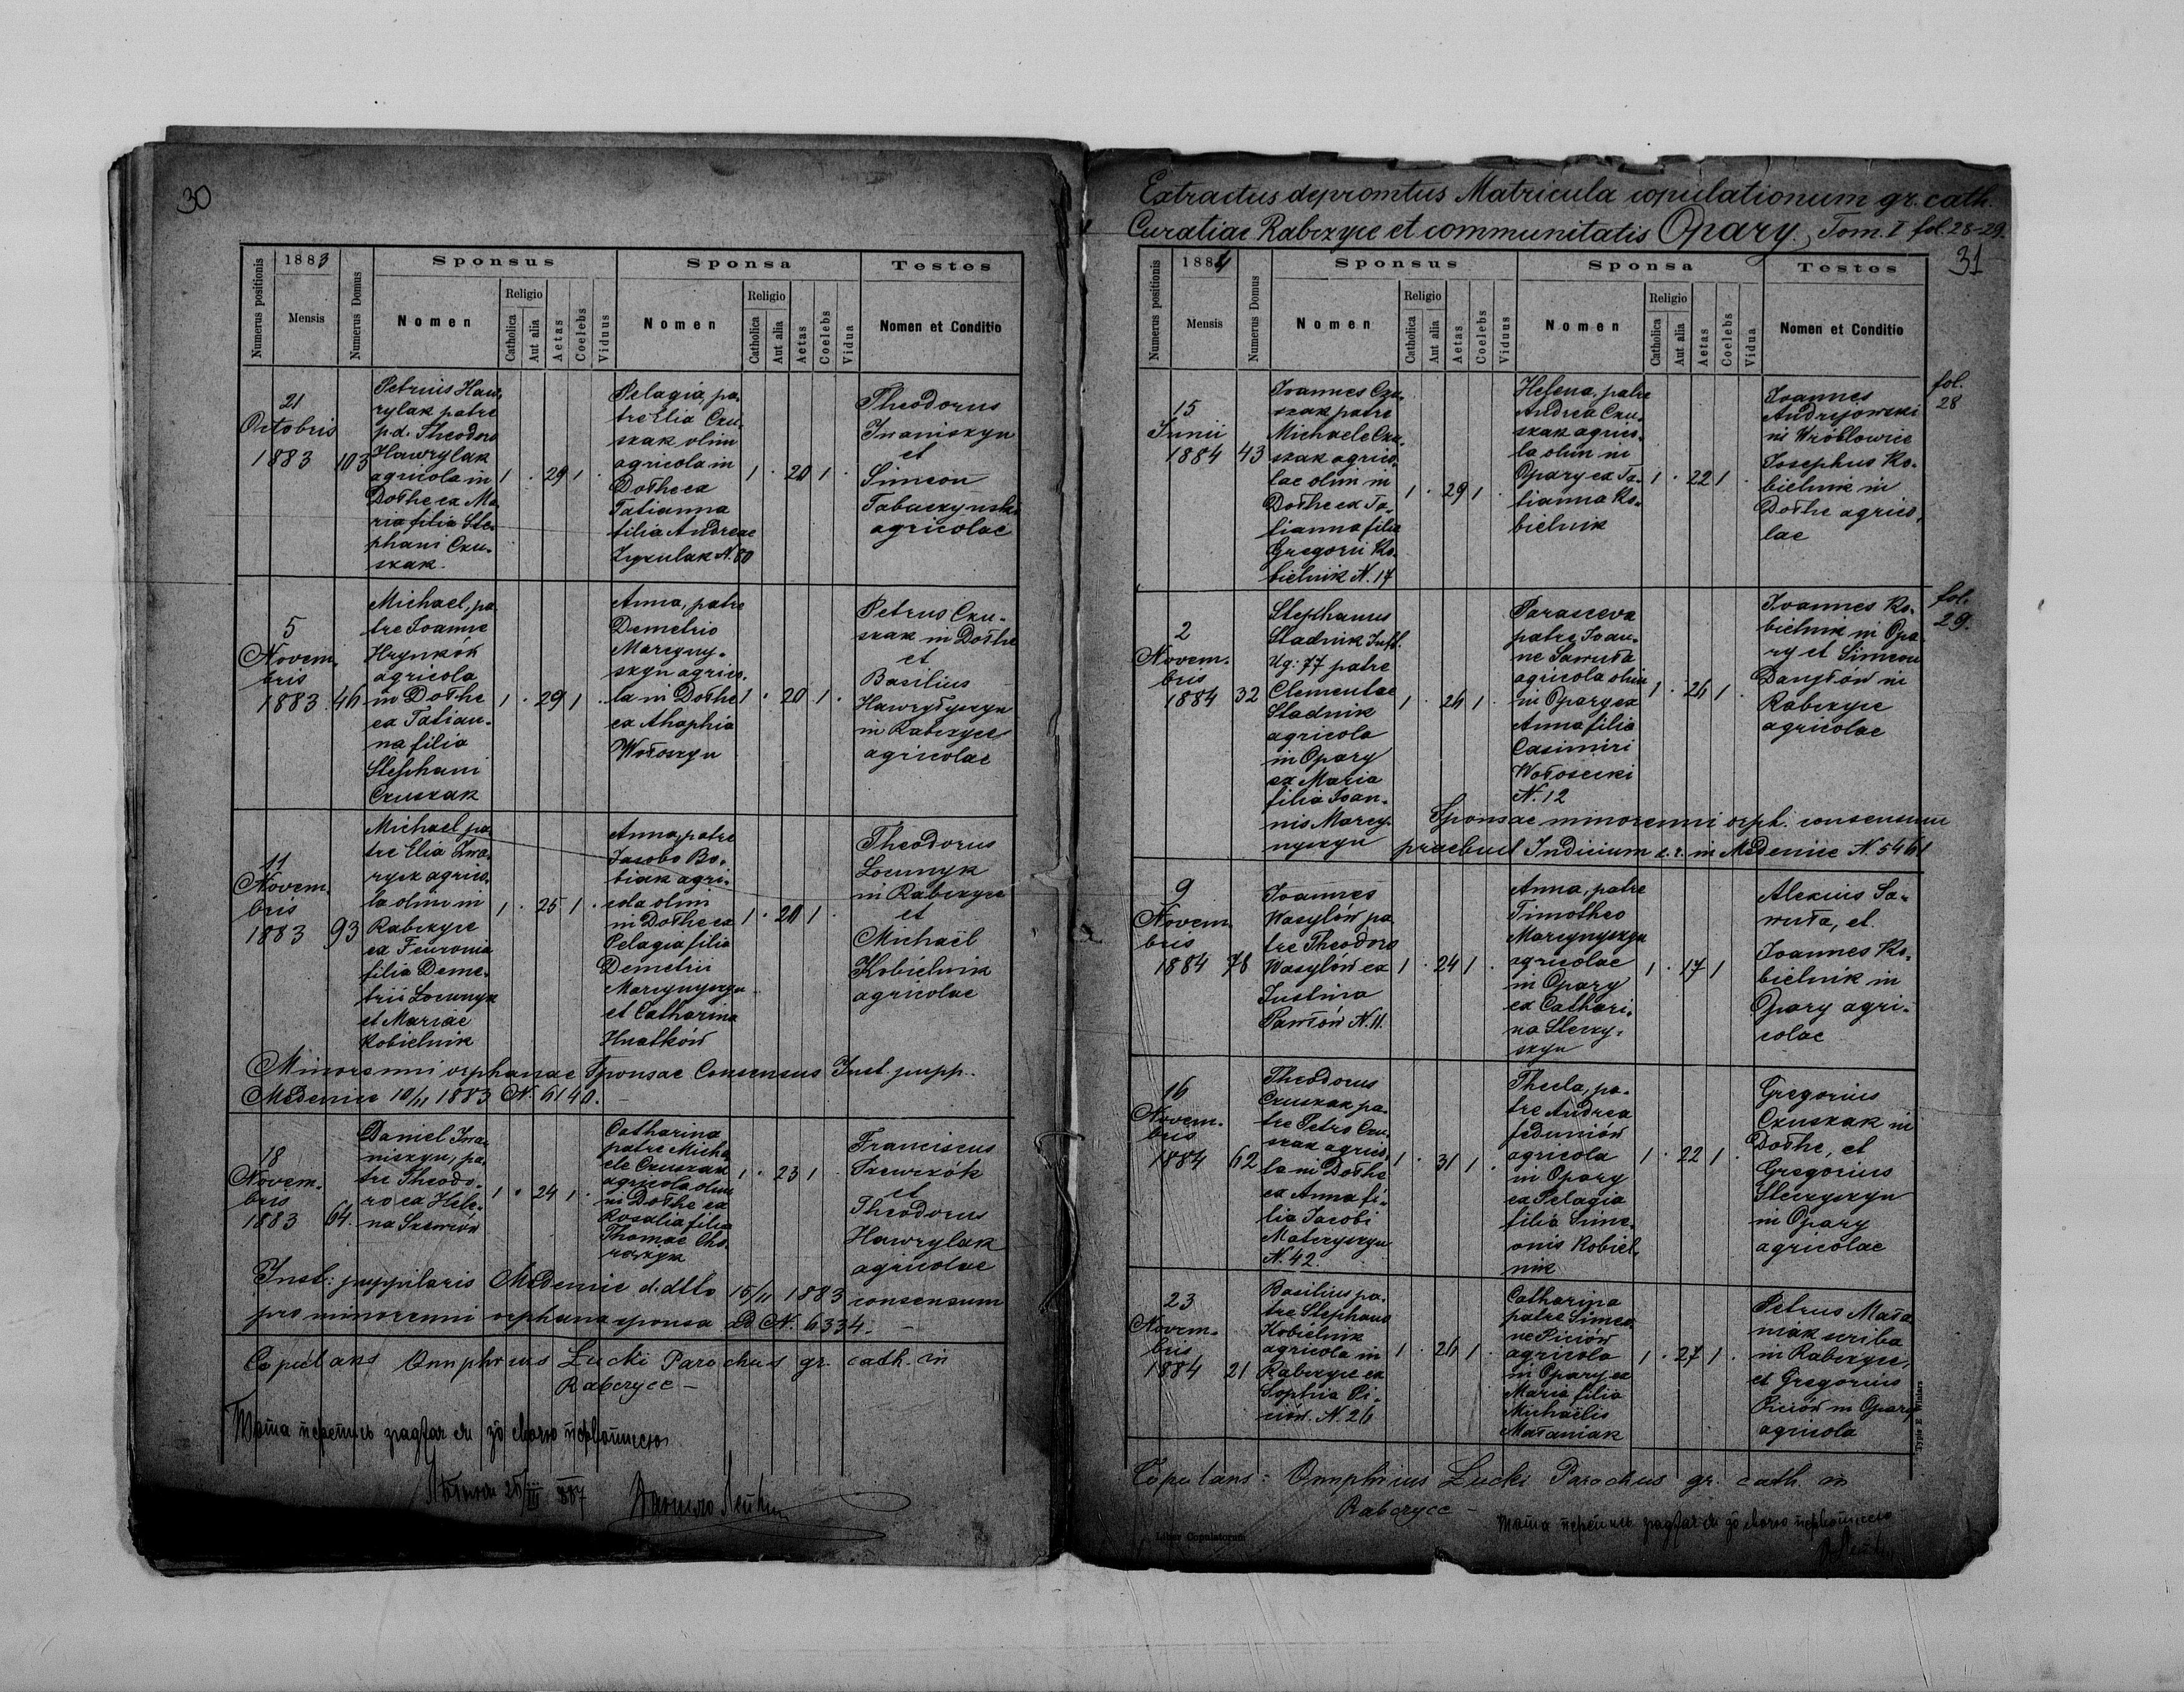 30
1883 Sponsus Sponsa Testes
Numerus positionis Mensis Numerus Domus Nomen Religio Catholica Aut alia Aetas Coelebs Viduus Nomen Religio Catholica Aut alia Aetas Coelebs Vidua Nomen et Conditio
21
Octobris
1883 103
Petrus Haw-
rylak patre
p.d. Theodoro
Hawrylak
agricola in
Dołhe ex Ma-
ria filia Ste-
phani Czu-
szak.
1 . 29 1 .
Pelagia, pa-
tre Elia Czu-
szak olim
agricola in
Dołhe ex
Tatianna
filia Andreae
Zyzulak N. 80
1 . 20 1 .
Theodorus
Iwaniszyn
et
Simeon
Tabaczynski
agricolae
5
Novem-
bris
1883. 46
Michael, pa-
tre Ioanne
Hrynków
agricola
in Dołhe
ex Tatian-
na filia
Stephani
Czuszak
1 . 29 1 .
Anna, patre
Demetrio
Marcyny-
szyn agrico-
la in Dołhe
ex Ahaphia
Wołoszyn
1 . 20 1 .
Petrus Czu-
szak in Dołhe
et
Basilius
Hawryłyszyn
in Rabczyce
agricolae
11
Novem-
bris
1883 93
Michael pa-
tre Elia Iwa-
agrico-
la olim in
Rabczyce
ex Feuronia
filia Deme-
trii Locunyk
et Mariae
Kobielnik
1 . 25 1 .
Anna, patre
Jacobo Bo-
biak agri-
cola olim
in Dołhe ex
Pelagia filia
Demetrii
Marcynyszyn
et Catharina
Hnatków
1 . 20 1 .
Theodorus
Locunyk
in Rabczyce
et
Michaël
Kobielnik
agricolae
Minorenni orphanae Sponsae Consensus Inst. pupp.
Medenice 10/11 1883 N. 6140.
18
Novem-
bris
1883 64.
Daniel Iwa-
niszyn, pa-
tre Theodo-
ro ex Hele-
na Szewców
1 . 24 1 .
Catharina
patre Micha-
ele Czuszak
agricola olim
in Dołhe ex
Rosalia filia
Thomae Cho-
1 . 23 1 .
Franciscus
Szewczók
et
Theodorus
Hawrylak
agricolae
Inst: puppilaris Medenice d.dtto 15/11 1883 consensum
pro minorenni orphana sponsa ad N. 6334.
Copulans Onuphrius Łucki Parochus gr. cath. in
Rabczyce –
31
Extractus depromtus Matricula copulationum gr. cath.
Curatiae Rabczyce et communitatis Opary, Tom. I fol. 28-29.
1884 Sponsus Sponsa Testes
Numerus positionis Mensis Numerus Domus Nomen Religio Catholica Aut alia Aetas Coelebs Viduus Nomen Religio Catholica Aut alia Aetas Coelebs Vidua Nomen et Conditio
fol.
28
15
Junii
1884 43
Ioannes Czu-
szak patre
Michaele Czu-
szak agrico-
lae olim in
Dołhe ex Ta-
tianna filia
Gregorii Ko-
bielnik N. 17
1 . 29 1 .
Helena, patre
Andrea Czu-
szak agrico-
la olim in
Opary ex Ta-
tianna Ko-
bielnik
1 . 22 1 .
Ioannes
Andrejowski
in Wróblowice
Josephus Ko-
bielnik in
Dołhe agrico-
lae
fol.
29.
2
Novem-
bris
1884 32
Stephanus
Stadnik Inft.
Rg: 77 patre
Clementae
Stadnik
agricola
in Opary
ex Maria
filia Ioan-
nis Marcy-
nyszyn
1 . 26 1 .
Parasceva
patre Ioan-
ne Sawuła
agricola olim
in Opary ex
Anna filia
Casimiri
Wołosecki
N. 12
1 . 26 1 .
Ioannes Ko-
bielnik in Opa-
ry et Simeon
Danyłów in
Rabczyce
agricolae
Sponsae minorenni orph. consensum
praebuit Judicium c.r. in Medenice N. 5461
9
Novem-
bris
1884 78
Ioannes
Wasylów pa-
tre Theodoro
Wasylów ex
Justina
Pawłów N. 11.
1 . 24 1 .
Anna, patre
Timotheo
Marcynyszyn
agricolae
in Opary
ex Cathari-
na Steczy-
szyn
1 . 17 1
Alexius Sa-
wuła, et
Ioannes Ko-
bielnik in
Opary agri-
colae
16
Novem-
bris
1884 62
Theodorus
Czuszak pa-
tre Petro Czu-
szak agrico-
la in Dołhe
ex Anna fi-
lia Jacobi
Matczyszyn
N. 42.
1 . 31 1 .
Thecla, pa-
tre Andrea
Feduniów
agricola
in Opary
ex Pelagia
filia Sime-
onis Kobiel-
nik
1 . 22 1 .
Gregorius
Czuszak in
Dołhe, et
Gregorius
Steczyszyn
in Opary
agricolae
23
Novem-
bris
1884 21
Basilius pa-
tre Stephano
Kobielnik
agricola in
Rabczyce ex
Sophia Pi-
ciów. N. 26
1 . 26 1 .
Catharina
patre Simeo-
ne Piciów
agricola
in Opary ex
Maria filia
Michaëlis
Małaniak
1 . 27 1 .
Petrus Mała-
niak scriba
in Rabczyce,
et Gregorius
Piciów in Opary
agricola
Typis E. Winiarz
Copulans: Onuphrius Łucki Parochus gr. cath. in
Rabczyce –
Liber Copulatorum